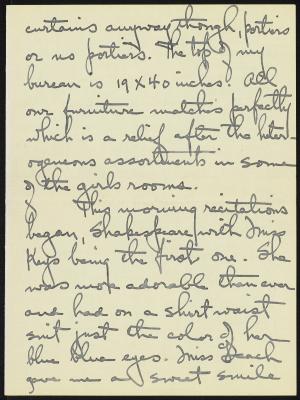 curtains anyway though, portiers
or no portiers. The top of my
bureau is 19 x 40 inches. All
our furniture matches perfectly
which is a relief after the heter-
ogeneous assortments in some
of the girls rooms.
This morning recitations
began, Shakespeare with Miss
Keys being the first one. She
was more adorable than ever
and had on a shirt waist
suit just the color of her
blue blue eyes. Miss Leach
gave me a sweet smile